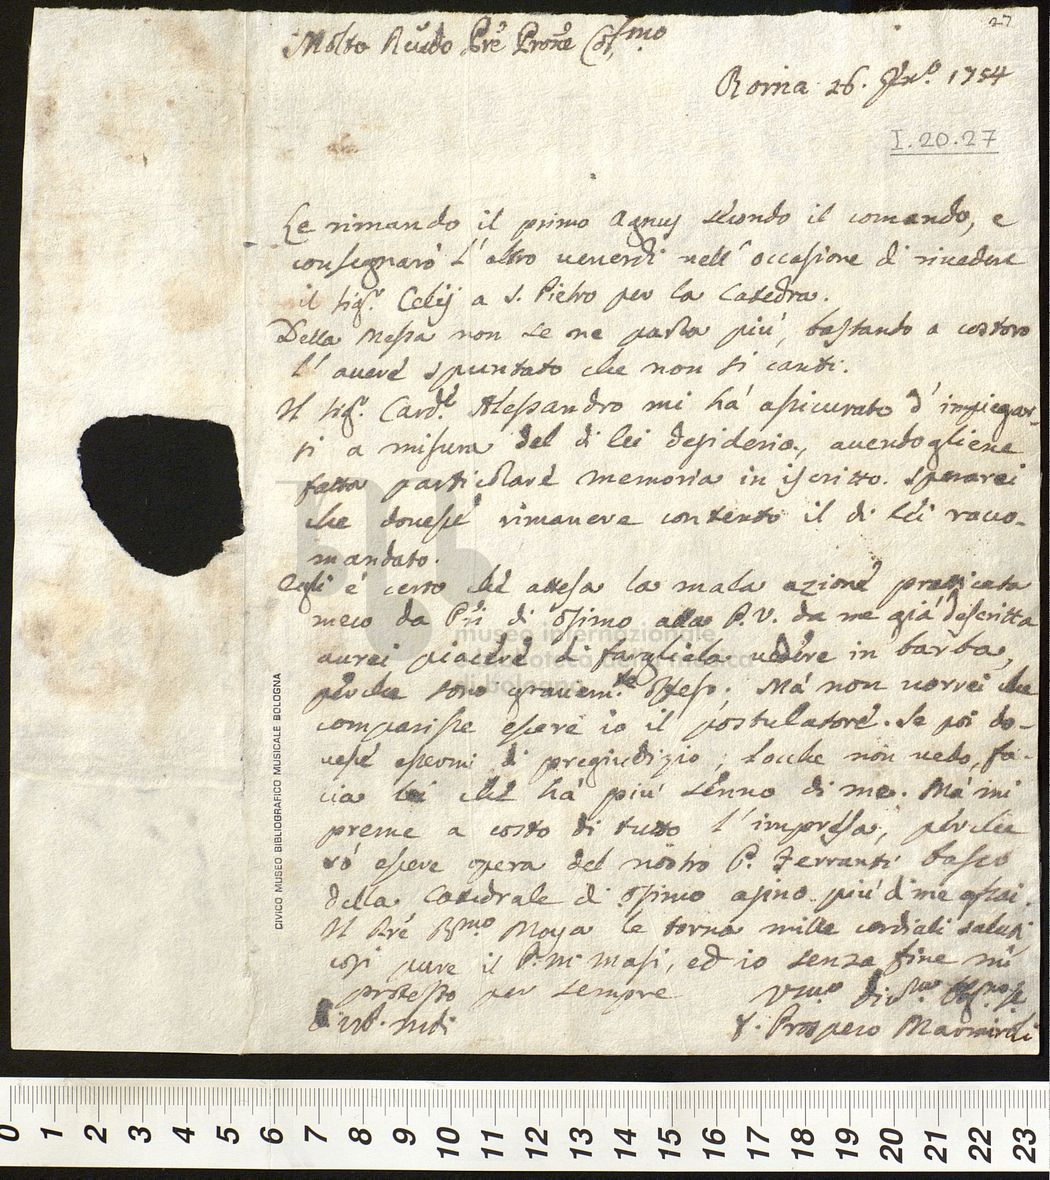 27
Molto Rĕndo Prĕ Prone Col.mo
Roma 26. Gen.o 1754
I.20.27
Le rimando il primo Agnus secondo il comando, e
consegnarò l'altro venerdì nell'occasione di rivedere
il Sig.r Celij a S. Pietro per la Catedra.
Della Messa non se ne parla più, bastando a costoro
l'averé spuntato che non si canti.
Il Sig.r Card.le Alessandro mi há assicurato d'impiegar-
si a misura del di lei desiderio, avendogliene
fatta particolaré memoria in iscritto. Sperarei
che dovesse rimanere contento il di Lei racco-
mandato.
Egli é certo ché attesa la mala azioné praticata
meco da Prĩ di Osimo alla P.V. da me giá descritta
aurei piaceré di fargliela vedere in barba,
perché sono gravem.te offeso. Má non vorrei che
comparisse esseré io il postulatoré. Se poi do-
vesé essermi di pregiudizio, locche non vedo, fa-
cia lei ché há piú senno di me. Má mi
preme a costo di tutto l'impresa, perché
só essere opera del nostro P. Ferranti basso
della Catedrale di Osimo asino più di me assai.
Il Pré R.mo Moya le torna mille cordiali saluti
così pure il P. M. Masi, ed io senza fine mi
protesto per sempre
F. Prospero Marmiroli
CIVICO MUSEO BIBLIOGRAFICO MUSICALE BOLOGNA
museo internazionale
e biblioteca della musica
di bologna
0 1 2 3 4 5 6 7 8 9 10 11 12 13 14 15 16 17 18 19 20 21 22 23